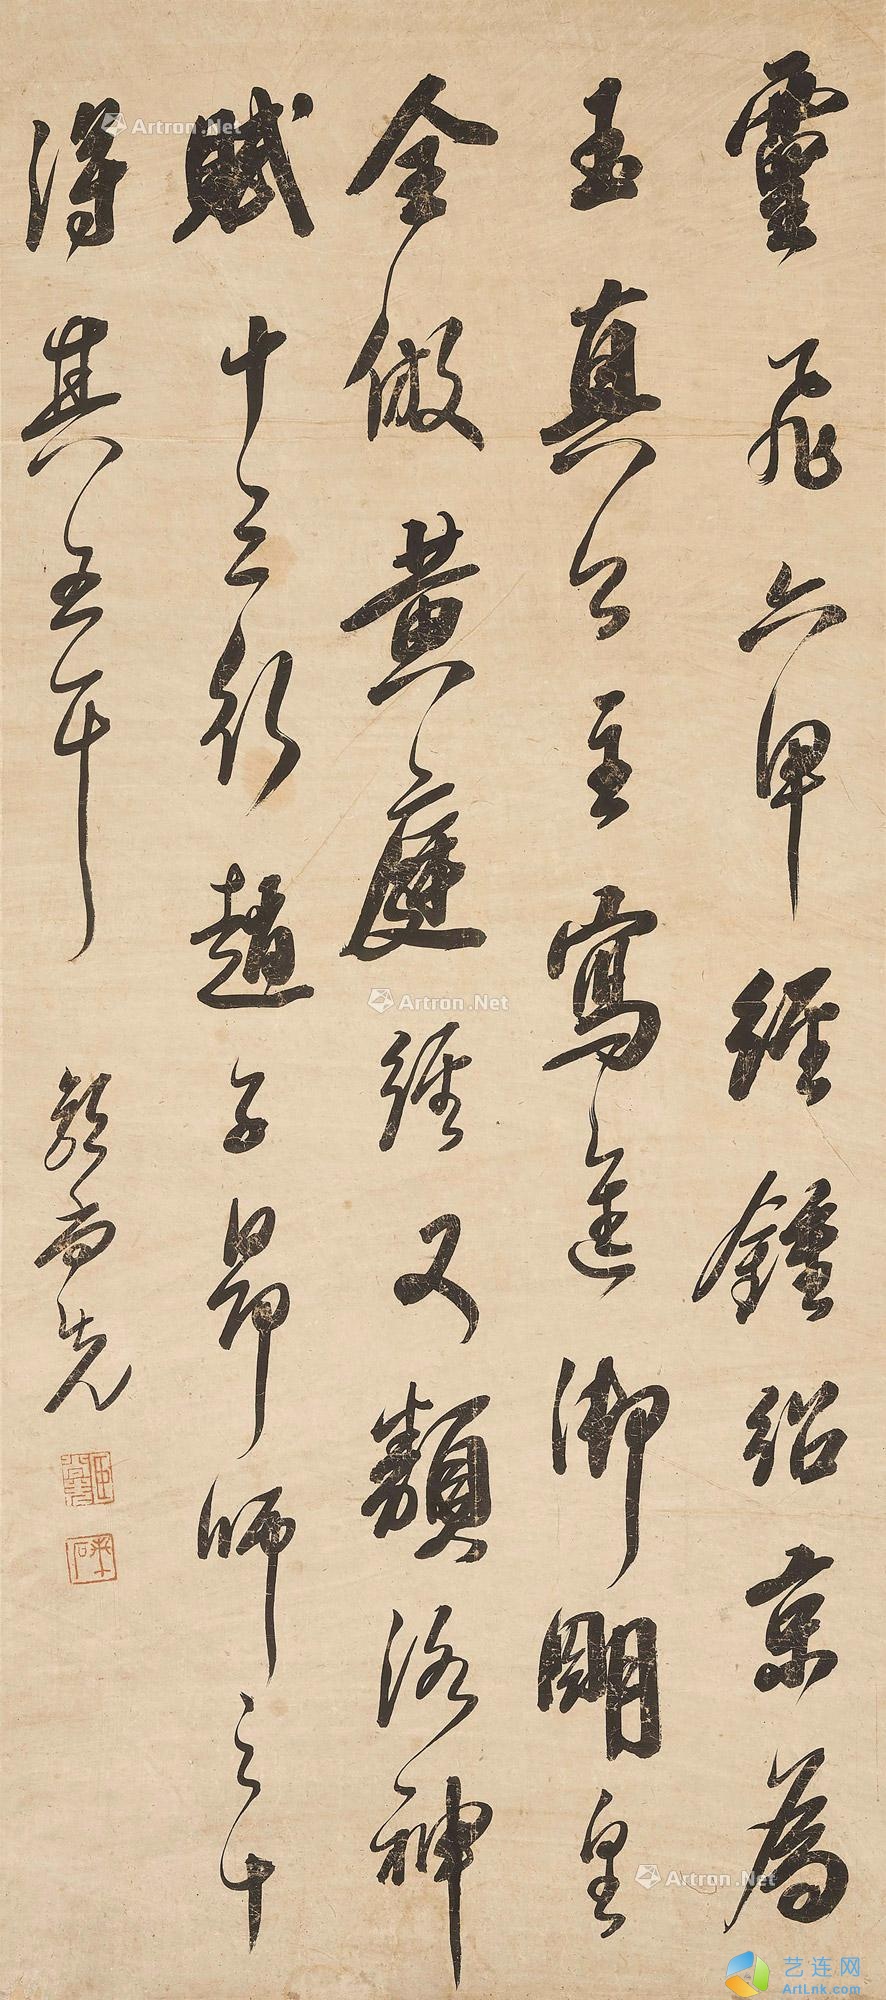 靈飛六甲經鍾紹京為
玉真公主寫進御明皇
全倣黃庭經又類洛神
賦十三行趙子昂師之十
得其五耳
Artron.Net
Artron.Net
Artron.Net
艺连网
ArtLnk.com